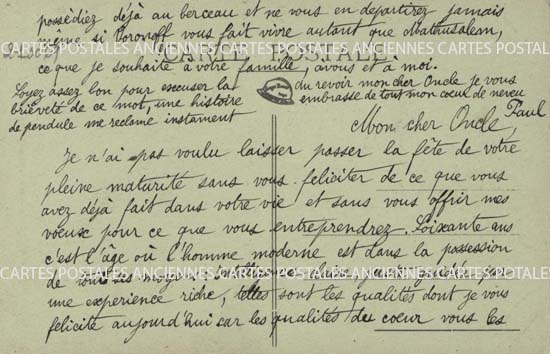 Mon cher Oncle,
Je n'ai pas voulu laisser passer la fête de votre
pleine maturité sans vous feliciter de ce que vous
avez déjà fait dans votre vie et sans vous offrir mes
voeux pour ce que vous entreprendrez. Soixante ans
c'est l'âge où l'homme moderne est dans la possession
de tous ses moyens,
une experience riche, telles sont les qualités dont je vous
félicite aujourd'hui car les qualités du coeur vous les
possédiez déjà au berceau et ne vous en departirez jamais
même si Voronoff vous fait vivre autant que Mathusalem,
ce que je souhaite à votre famille, à vous et à moi.
Soyez assez bon pour excuser la
brièveté de ce mot, une histoire
de pendule me reclame instament
Au revoir mon cher Oncle je vous
embrasse de tout mon coeur de neveu
Paul
CARTE POSTALE
CARTES POSTALES ANCIENNES CARTES POSTALES ANCIENNES CARTES POSTALES
CARTES POSTALES ANCIENNES CARTES POSTALES ANCIENNES CARTES POSTALES